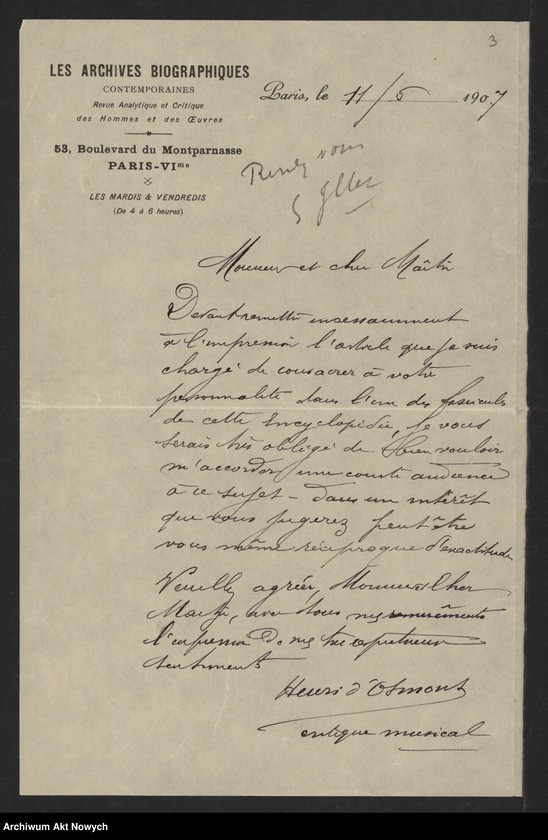 3
LES ARCHIVES BIOGRAPHIQUES
CONTEMPORAINES
Revue Analytique et Critique
des Hommes et des Œuvres
53, Boulevard du Montparnasse
PARIS-VIme
LES MARDIS & VENDREDIS
(De 4 à 6 heures)
Paris, le 11/6 1907
Rendez vous
Monsieur et cher Maître
Devant remettre incessamment
à l'impression l'article que je suis
chargé de consacrer à votre
personnalité dans l'un des fascicules
de cette Encyclopédie, je vous
serais très obligé de bien vouloir
m'accorder une courte audience
à ce sujet – dans un intérêt
que vous jugerez peut être
vous même réciproque d'exactitude
Veuillez agréer, Monsieur et Cher
Maître, avec tous mes remerciements
l'expression de mes très respectueux
sentiments
Henri d'Osmont
critique musical
Archiwum Akt Nowych